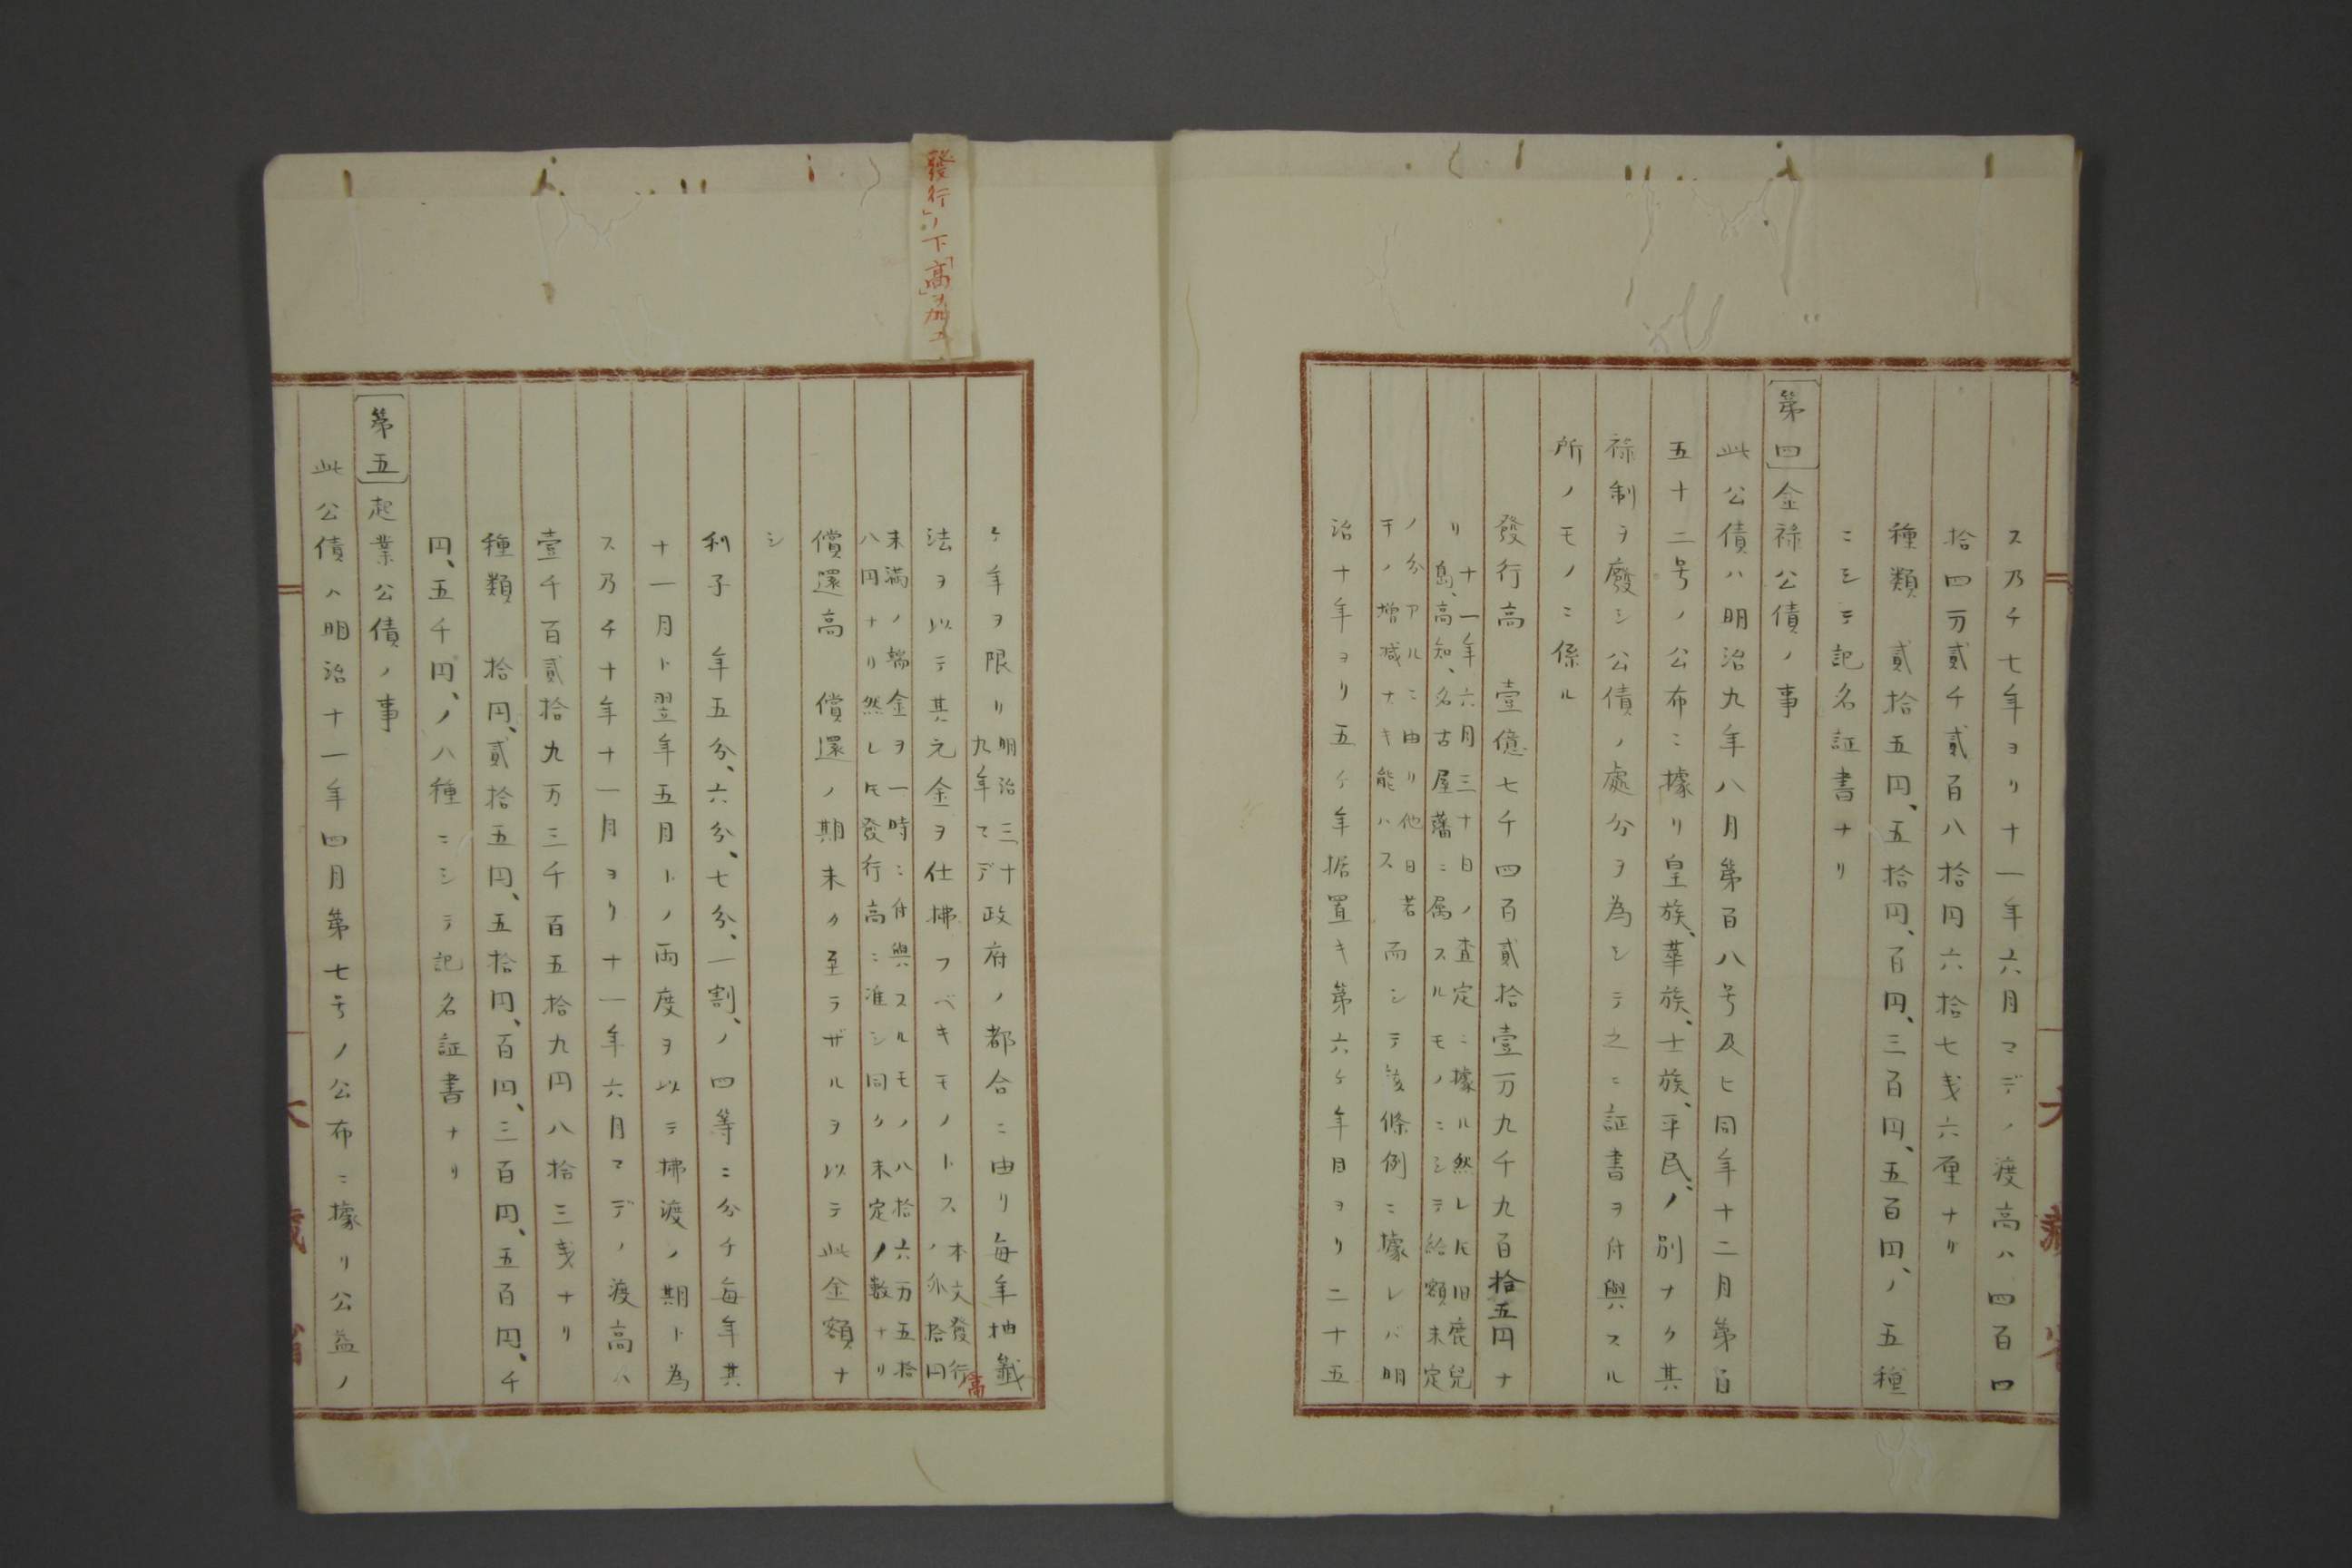 ス乃チ七年ヨリ十一年六月マデノ渡高ハ四百四
拾四万貳千貳百八拾円六拾七戔六厘ナリ
種類 貳拾五円、五拾円、百円、三百円、五百円、ノ五種
ニシテ記名証書ナリ
第四 金禄公債ノ事
此公債ハ明治九年八月第百八号及ヒ同年十二月第百
五十二号ノ公布ニ據リ皇族、華族、士族、平民、ノ別ナク其
禄制ヲ廢シ公債ノ處分ヲ為シテ之ニ証書ヲ付與スル
所ノモノニ係ル
發行高 壹億七千四百貳拾壹万九千九百拾五円ナ
リ
十一年六月三十日ノ査定ニ據ル然レ𪜈旧鹿兒
島、高知、名古屋藩ニ属スルモノニシテ給額未定
ノ分アルニ由リ他日若
干ノ増减ナキ能ハス
而シテ該條例ニ據レバ明
治十年ヨリ五ケ年据置キ第六ケ年目ヨリ二十五
發行」ノ下「高」ヲ加フ
ケ年ヲ限リ
明治三十
九年マデ
政府ノ都合ニ由リ毎年抽籤
法ヲ以テ其元金ヲ仕拂フベキモノトス
本文發行高
ノ外拾円
未滿ノ端金ヲ一時ニ付與スルモノ八拾六万五拾
八円ナリ然レ𪜈發行高ニ准シ同ク未定ノ數ナリ
償還高 償還ノ期未タ至ラザルヲ以テ此金額ナ
シ
利子 年五分、六分、七分、一割、ノ四等ニ分チ毎年其
十一月ト翌年五月トノ兩度ヲ以テ拂渡ノ期ト為
ス乃チ十年十一月ヨリ十一年六月マデノ渡高ハ
壹千百貳拾九万三千百五拾九円八拾三戔ナリ
種類 拾円、貳拾五円、五拾円、百円、三百円、五百円、千
円、五千円、ノ八種ニシテ記名証書ナリ
第五 起業公債ノ事
此公債ハ明治十一年四月第七号ノ公布ニ據リ公益ノ
大藏省